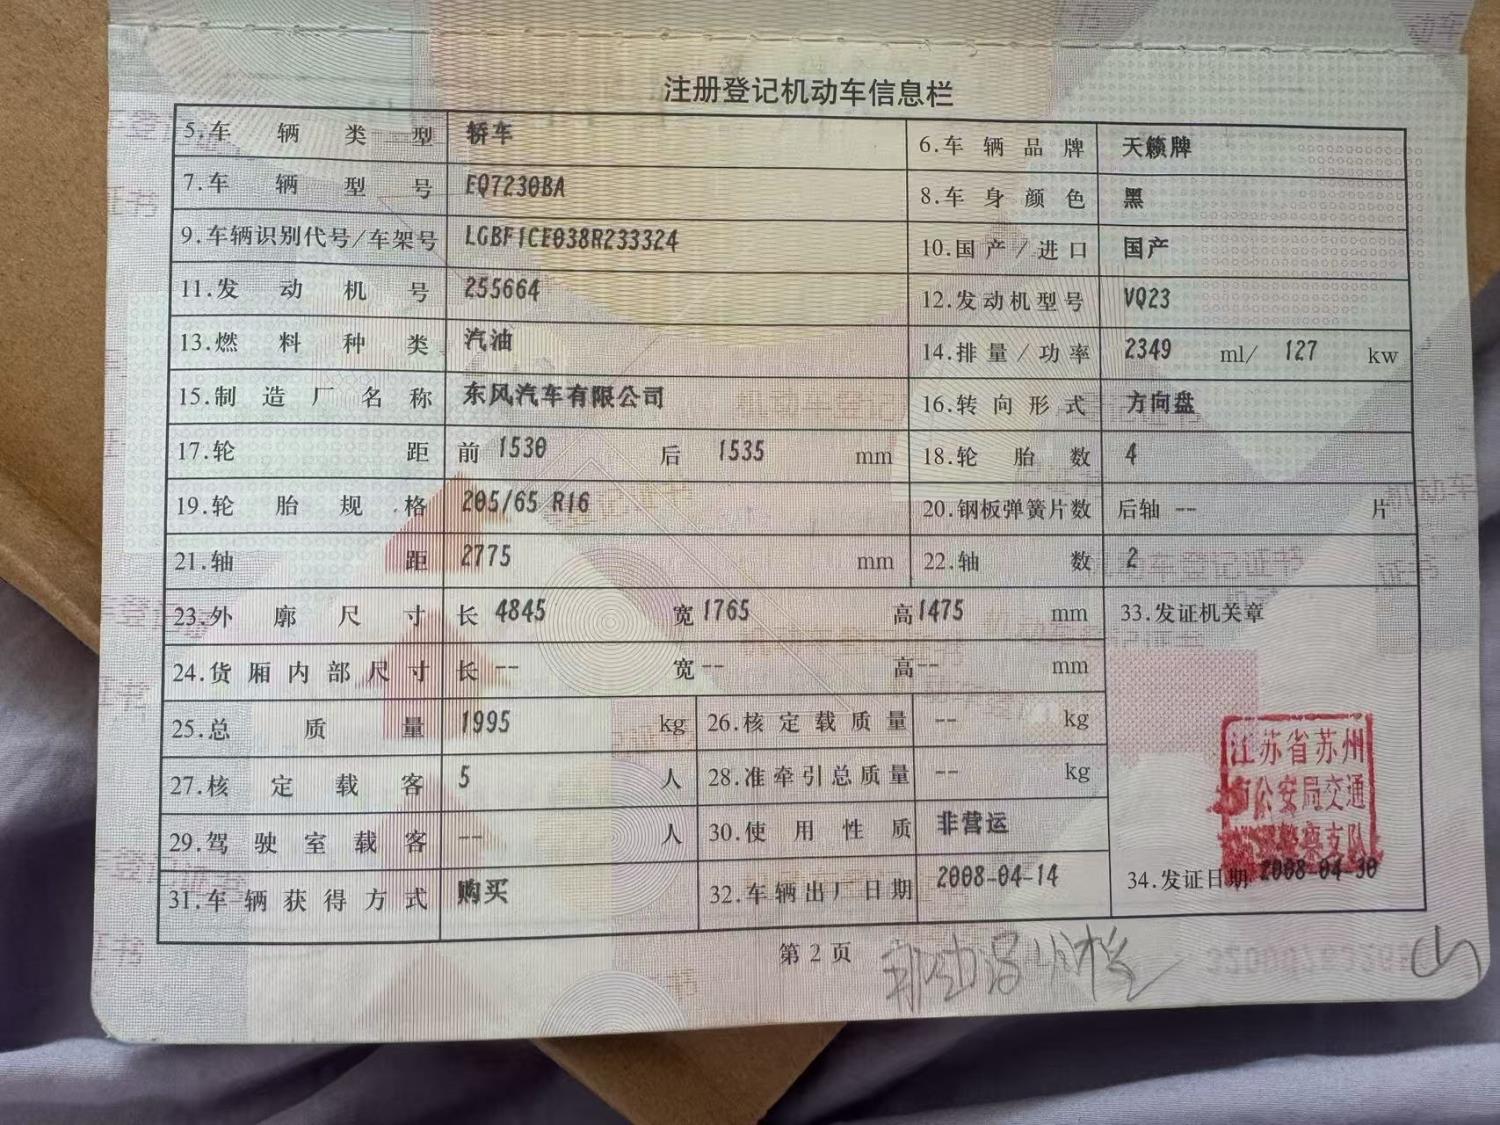 注册登记机动车信息栏
5.车辆类型 轿车 6.车辆品牌 天籁牌
7.车辆型号 EQ7230BA 8.车身颜色 黑
9.车辆识别代号/车架号 LGBF1CE038R233324 10.国产/进口 国产
11.发动机号 255664 12.发动机型号 VQ23
13.燃料种类 汽油 14.排量/功率 2349 ml/ 127 kw
15.制造厂名称 东风汽车有限公司 16.转向形式 方向盘
17.轮距 前 1530 后 1535 mm 18.轮胎数 4
19.轮胎规格 205/65 R16 20.钢板弹簧片数 后轴 -- 片
21.轴距 2775 mm 22.轴数 2
23.外廓尺寸 长 4845 宽 1765 高 1475 mm 33.发证机关章
24.货厢内部尺寸 长 -- 宽 -- 高 -- mm
25.总质量 1995 kg 26.核定载质量 -- kg
江苏省苏州
27.核定载客 5 人 28.准牵引总质量 -- kg
市公安局交通
29.驾驶室载客 -- 人 30.使用性质 非营运
警察支队
31.车辆获得方式 购买 32.车辆出厂日期 2008-04-14 34.发证日期 2008-04-30
第 2 页